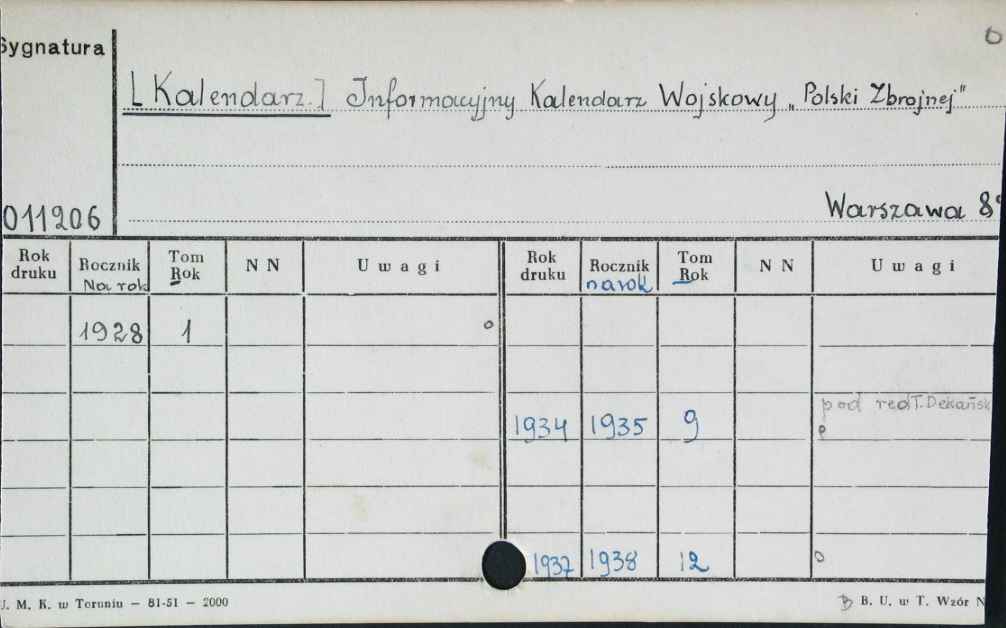 Sygnatura
[Kalendarz.] Informacyjny Kalendarz Wojskowy „Polski Zbrojnej"
011206
Warszawa 8°
Rok druku Rocznik Na rok Tom Rok N N Uwagi Rok druku Rocznik na rok Tom Rok N N Uwagi
1928 1 o
pod red T. Dekańsk
1934 1935 9
1937 1938 12 o
U. M. K. w Toruniu — 81-51 — 2000
B. U. w T. Wzór N